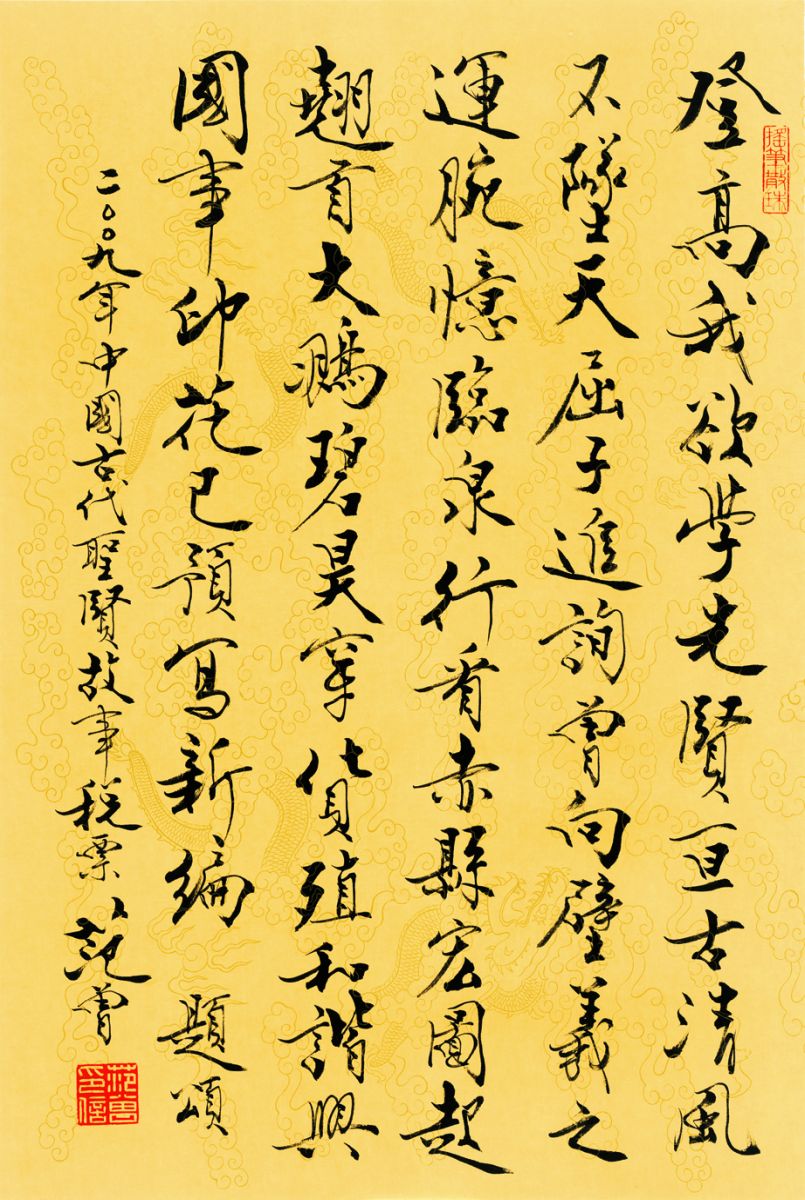 登高我欲學先賢亘古清風
不墜天屈子進詢曾向壁羲之
運腕憶臨泉行看赤縣宏圖起
翹首大鵬碧昊穿貨殖和諧興
國事印花已預寫新編 題頌
二〇〇九年中國古代聖賢故事稅票 范曾
搖筆散珠
范曾印信